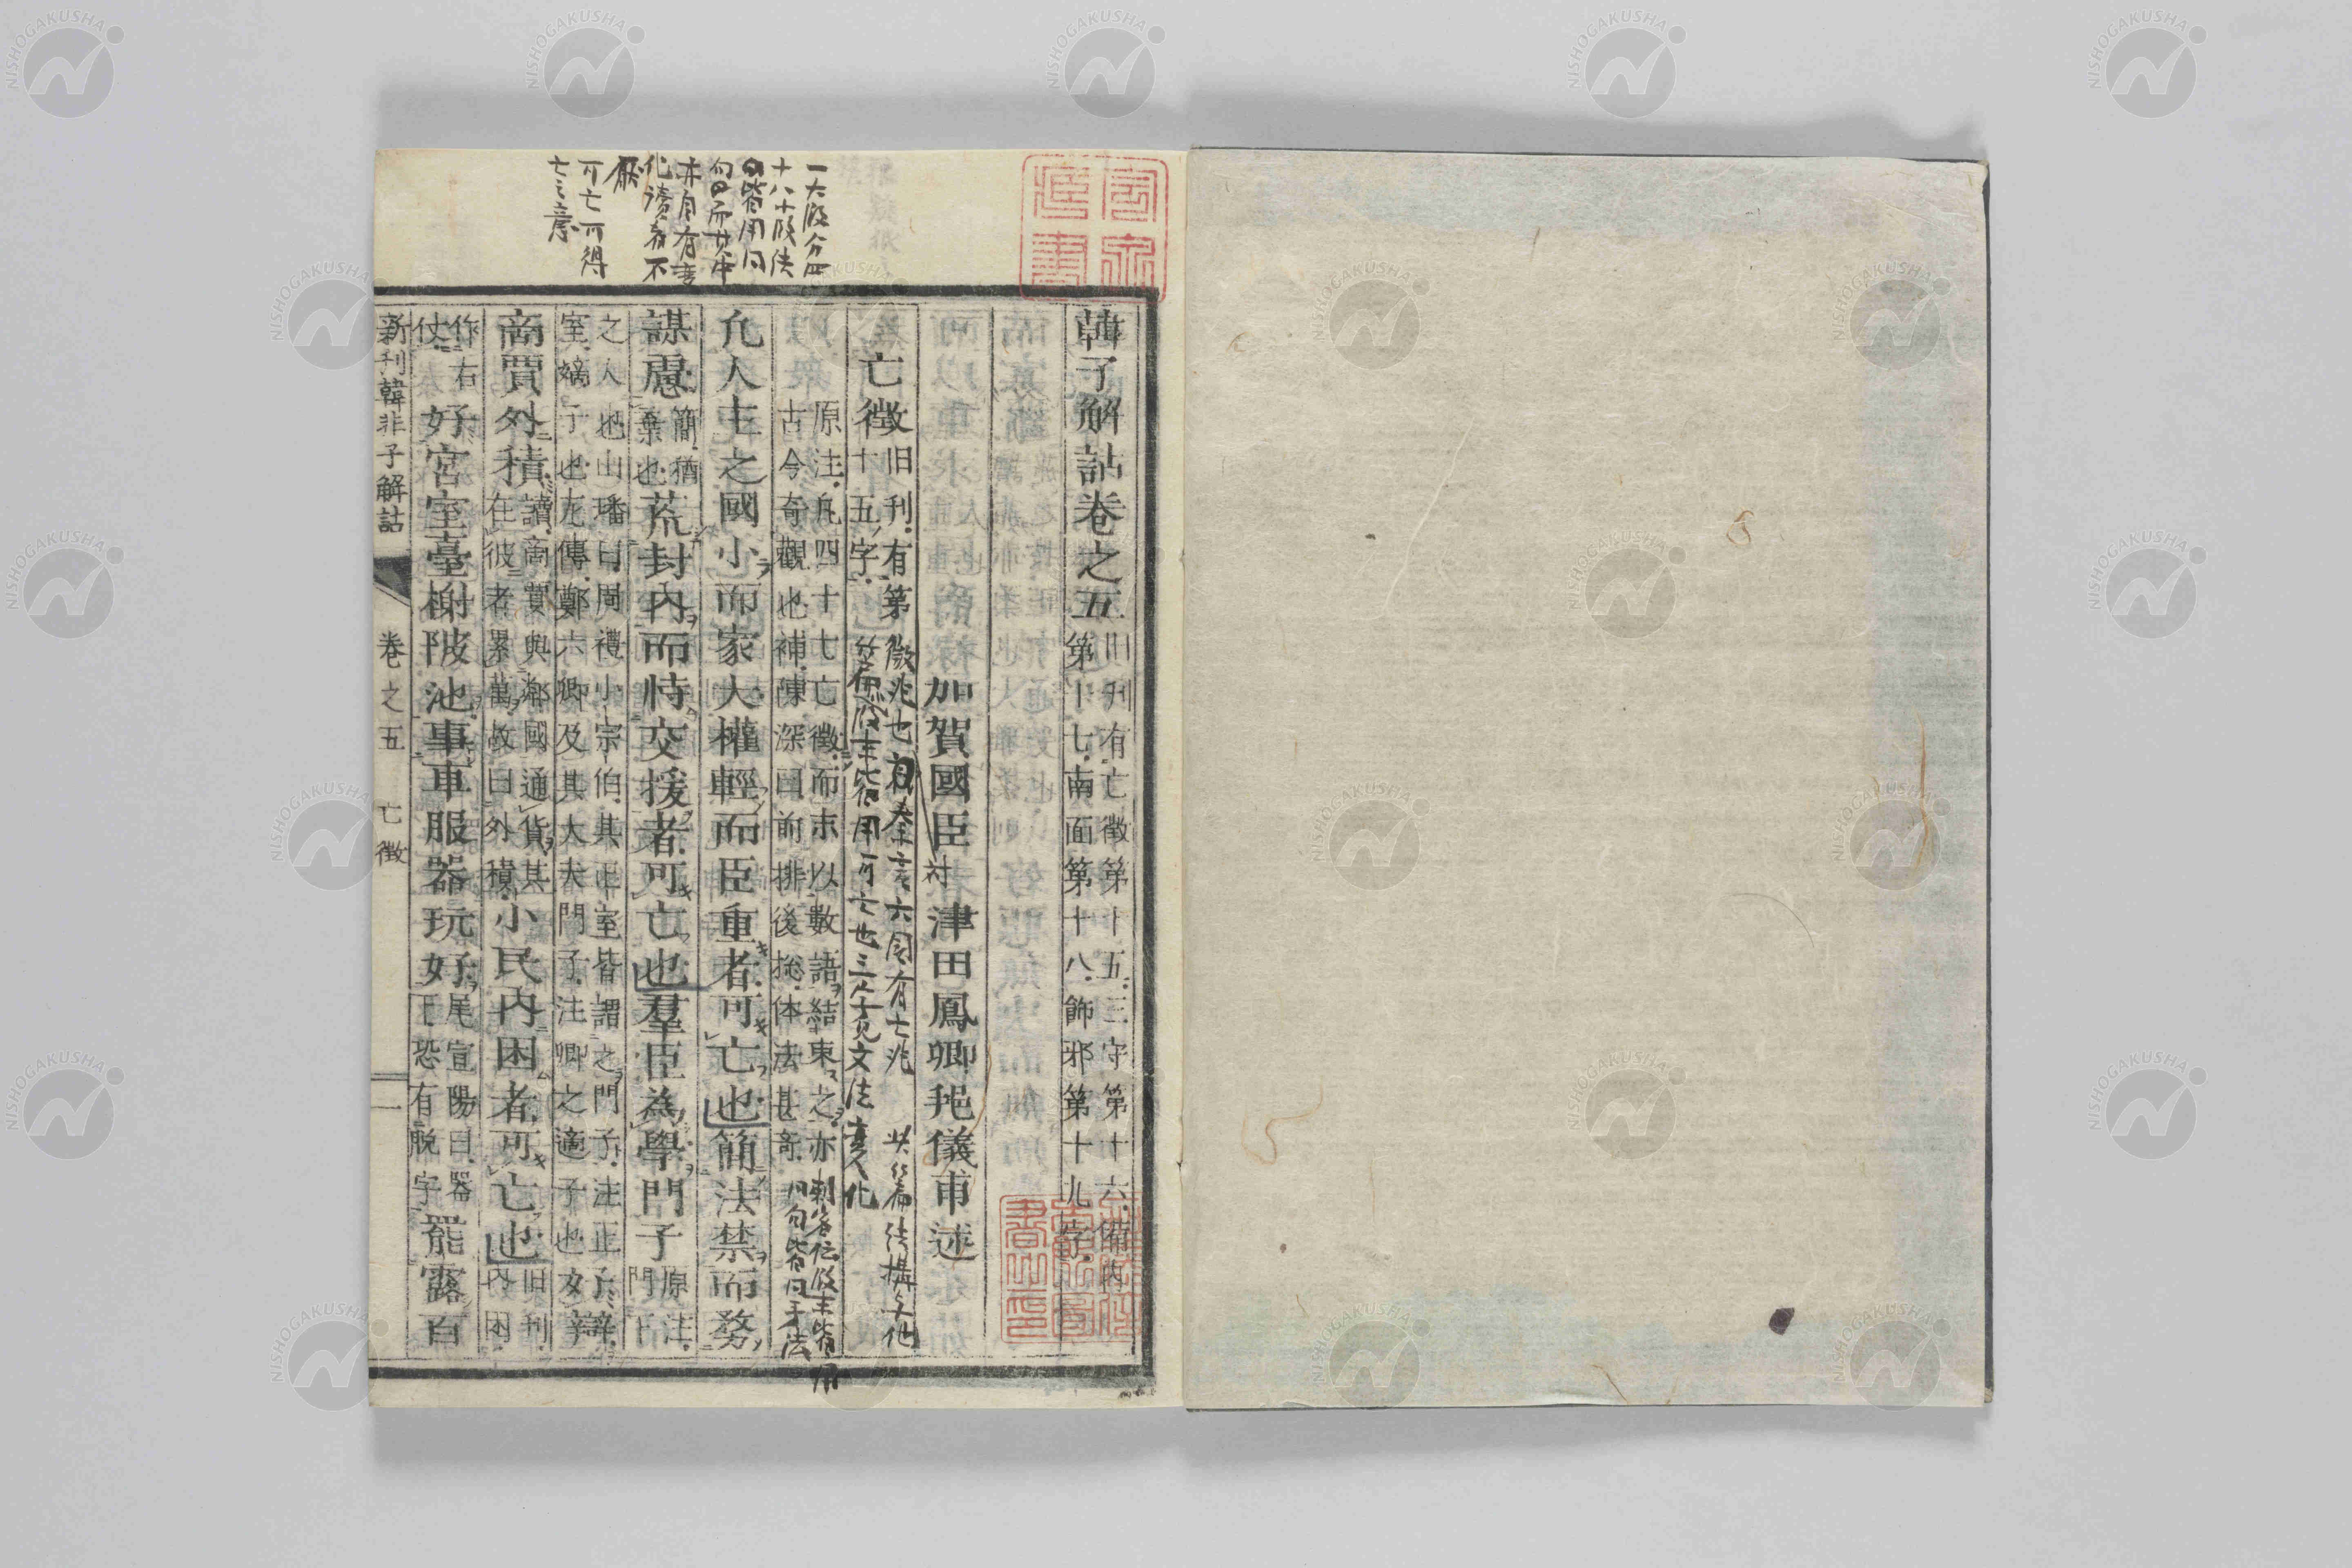 韓子解詁卷之五 旧刊有亡徵第十五三守第十六備内
第十七南面第十八飾邪第十九字
加賀國臣 津田鳳卿 儀甫述
亡徵 旧刊有第
十五字
原注凡四十七亡徵而末以數語結束之亦
古今奇觀也補陳深曰前排後総体法甚奇
凢人主之國小而家大權輕而臣重者可亡也簡法禁而務
謀慮 簡猶
棄也 荒封内而恃交援者可亡也羣臣為學門子 原注
門下
之人也山璠曰周禮小宗伯其正室皆謂之門子注正
室嫡子也左傳鄭六卿及其大夫門子注卿之適子也
商賈外積 讀商賈與鄰國通貨其
在彼者累萬故曰外積 小民内困者可亡也 旧刊
内困
作右
仗 好宮室臺榭陂池事車服器玩好 尾宣陽曰器
上恐有脫字 罷露百
新刊韓非子解詁 卷之五 亡徵 一
一大段分四
十八小段法
句皆用同
句而其中
亦自有変
化讀者不
厭
可亡可得
亡之意
徵兆也
六國有亡兆
篇段末皆用可亡也三字
文法変化
此篇法
句皆同手法
NISHOGAKUSHA